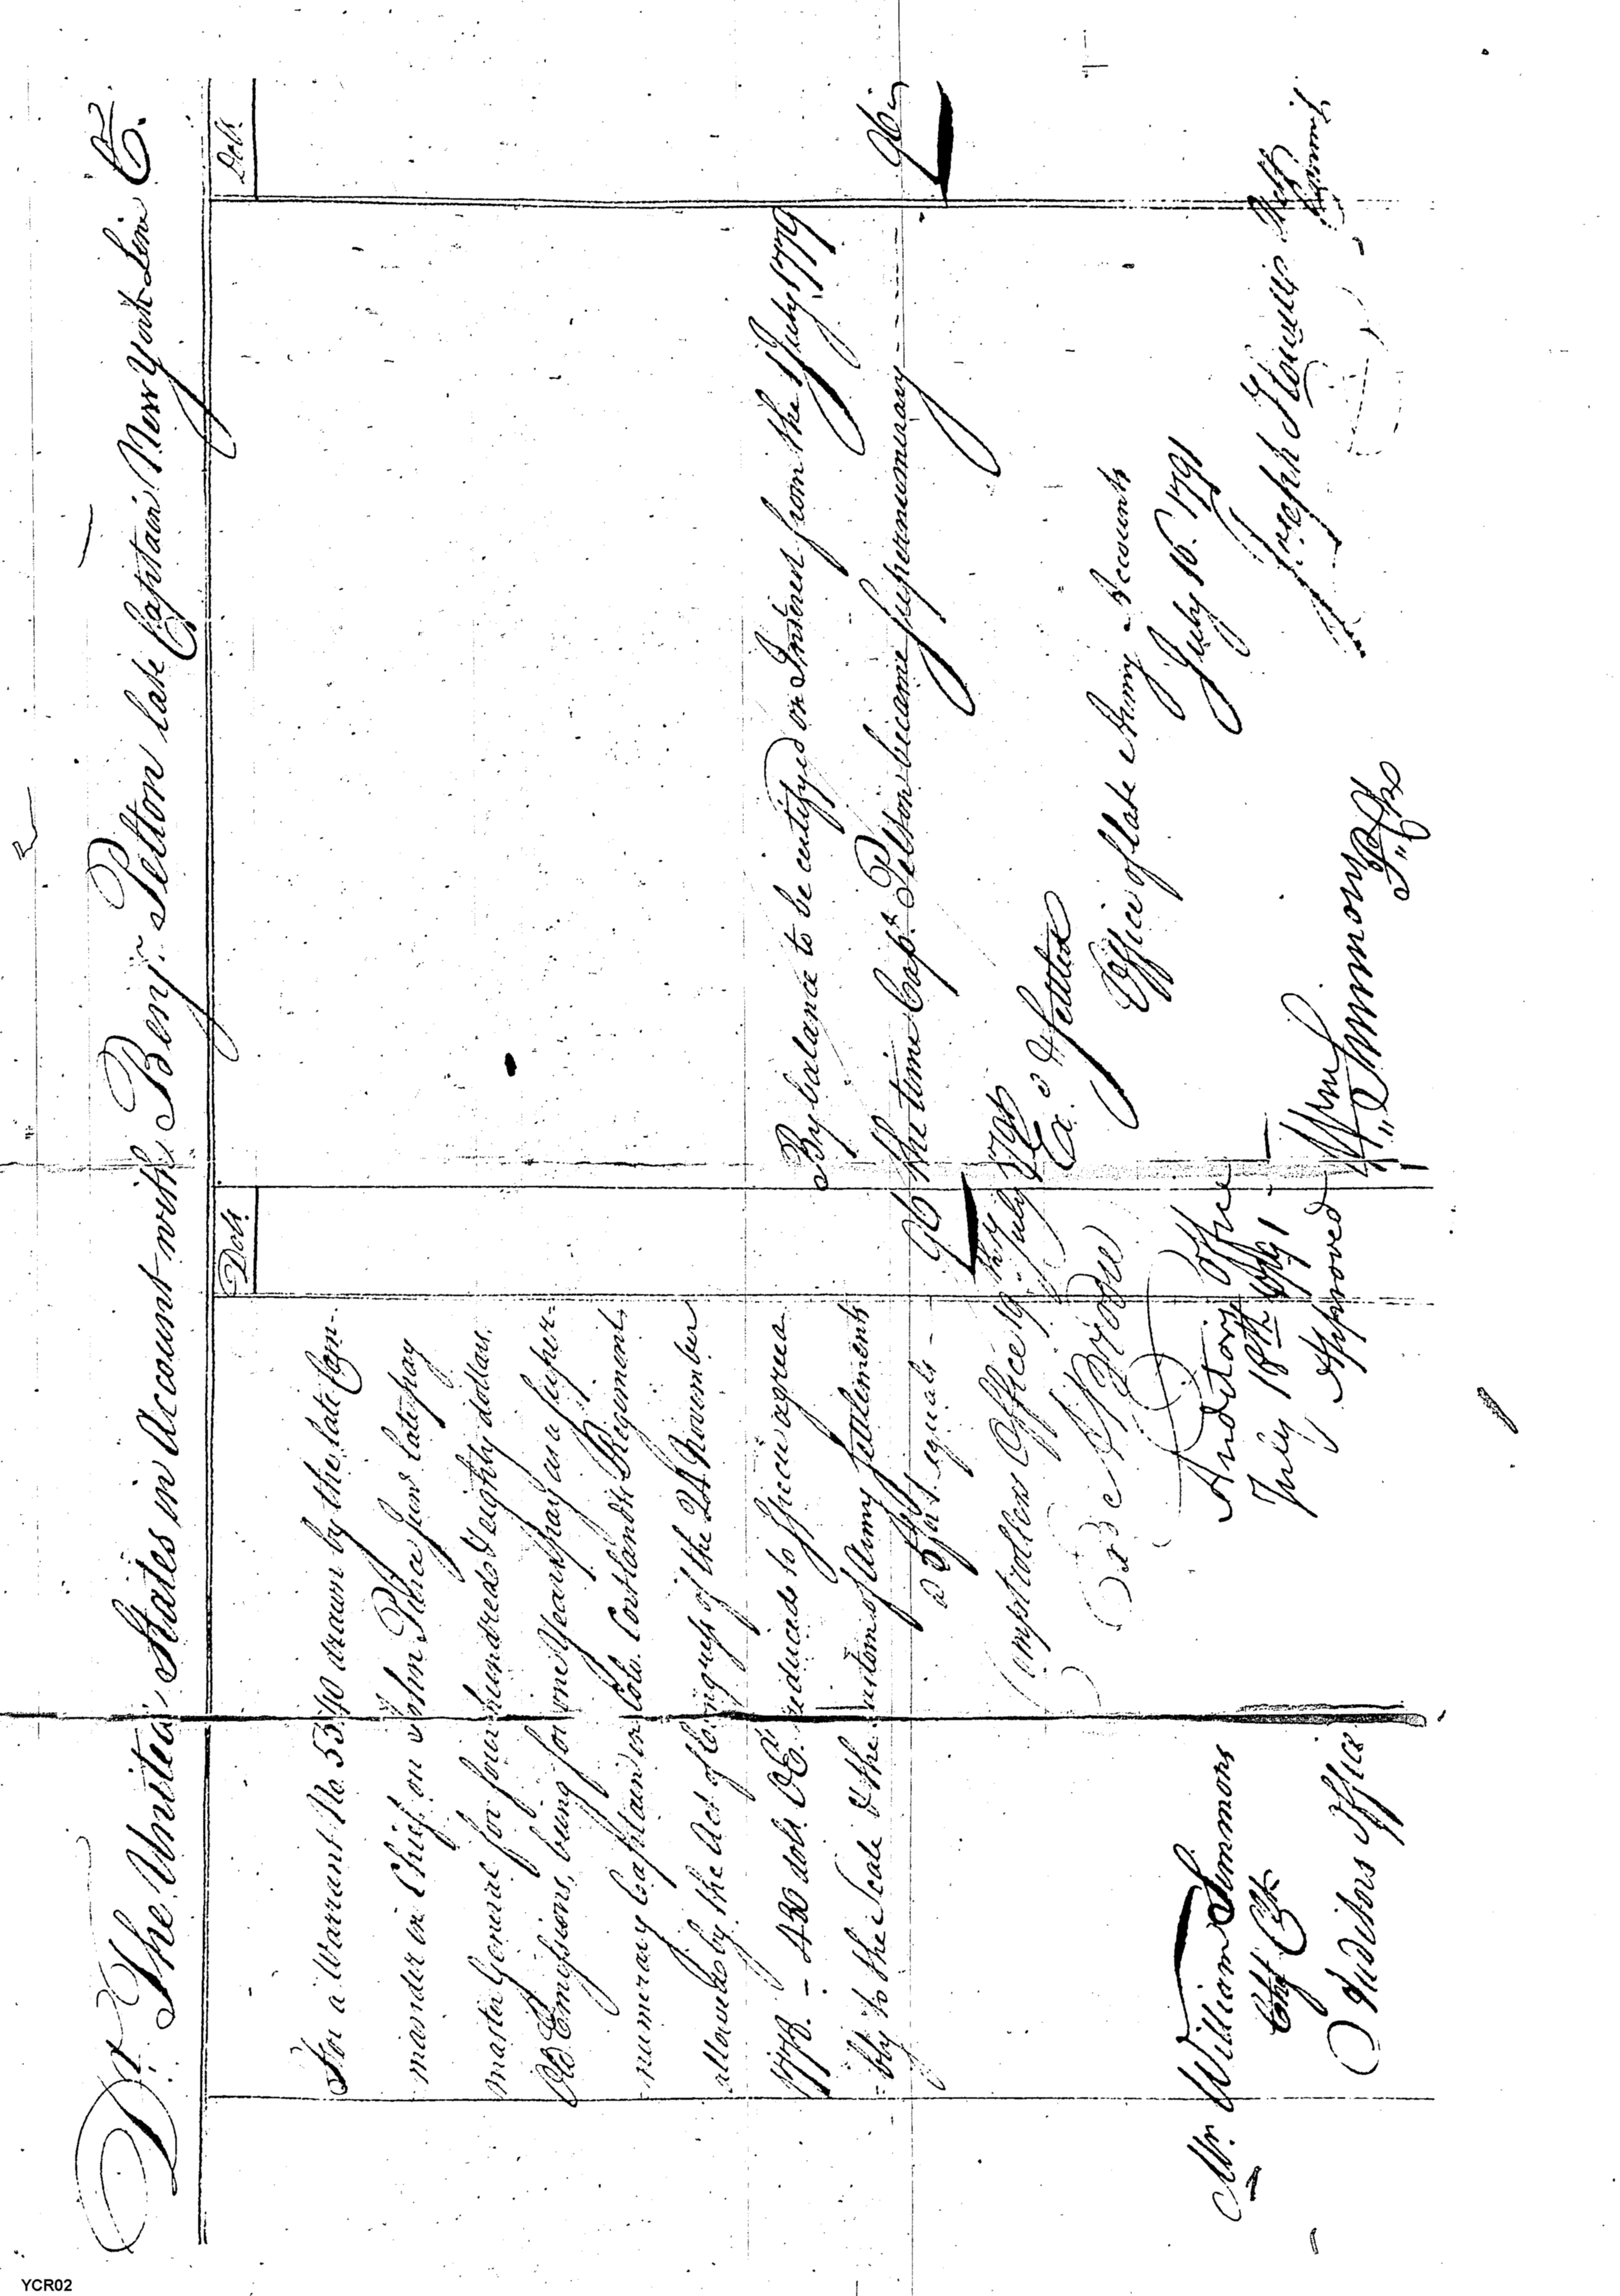 Dr. The United States in Account with Benj. Pelton late Captain New York Line Cr.
Dolls.
Dolls.
For a Warrant No. 5340 drawn by the late Com-
mander in Chief on John Pierce Junr. late pay
master General for four hundred & eighty dollars.
Old Emissions, being for one Years pay as a Super-
numerary Captain in Colo. Cortlandts Regiment
allowed by the Act of Congress of the 24 November
1778. — 480 dolls. OEs. reduced to Specie agreea
-bly to the Scale & the custom of Army Settlements
a 5 for 1 equals — 96
By balance to be certifyed on Interest from the 1 July 1779
the time Capt. Pelton became Supernumerary - - - - 96
Comptrollers Office 19th July 1791
Ex. & Settled
Office of late Army Accounts
July 16. 1791
Joseph Howell
Auditors Office
July 18th 1791
Approved
Wm Simmons
Mr. William Simmons
Chf Clk
Auditors Office
YCR02